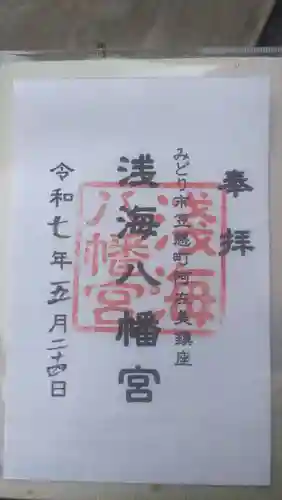 奉拝
みどり市笠懸町阿左美鎮座
浅海八幡宮
淺海
八幡宮
令和七年五月二十四日